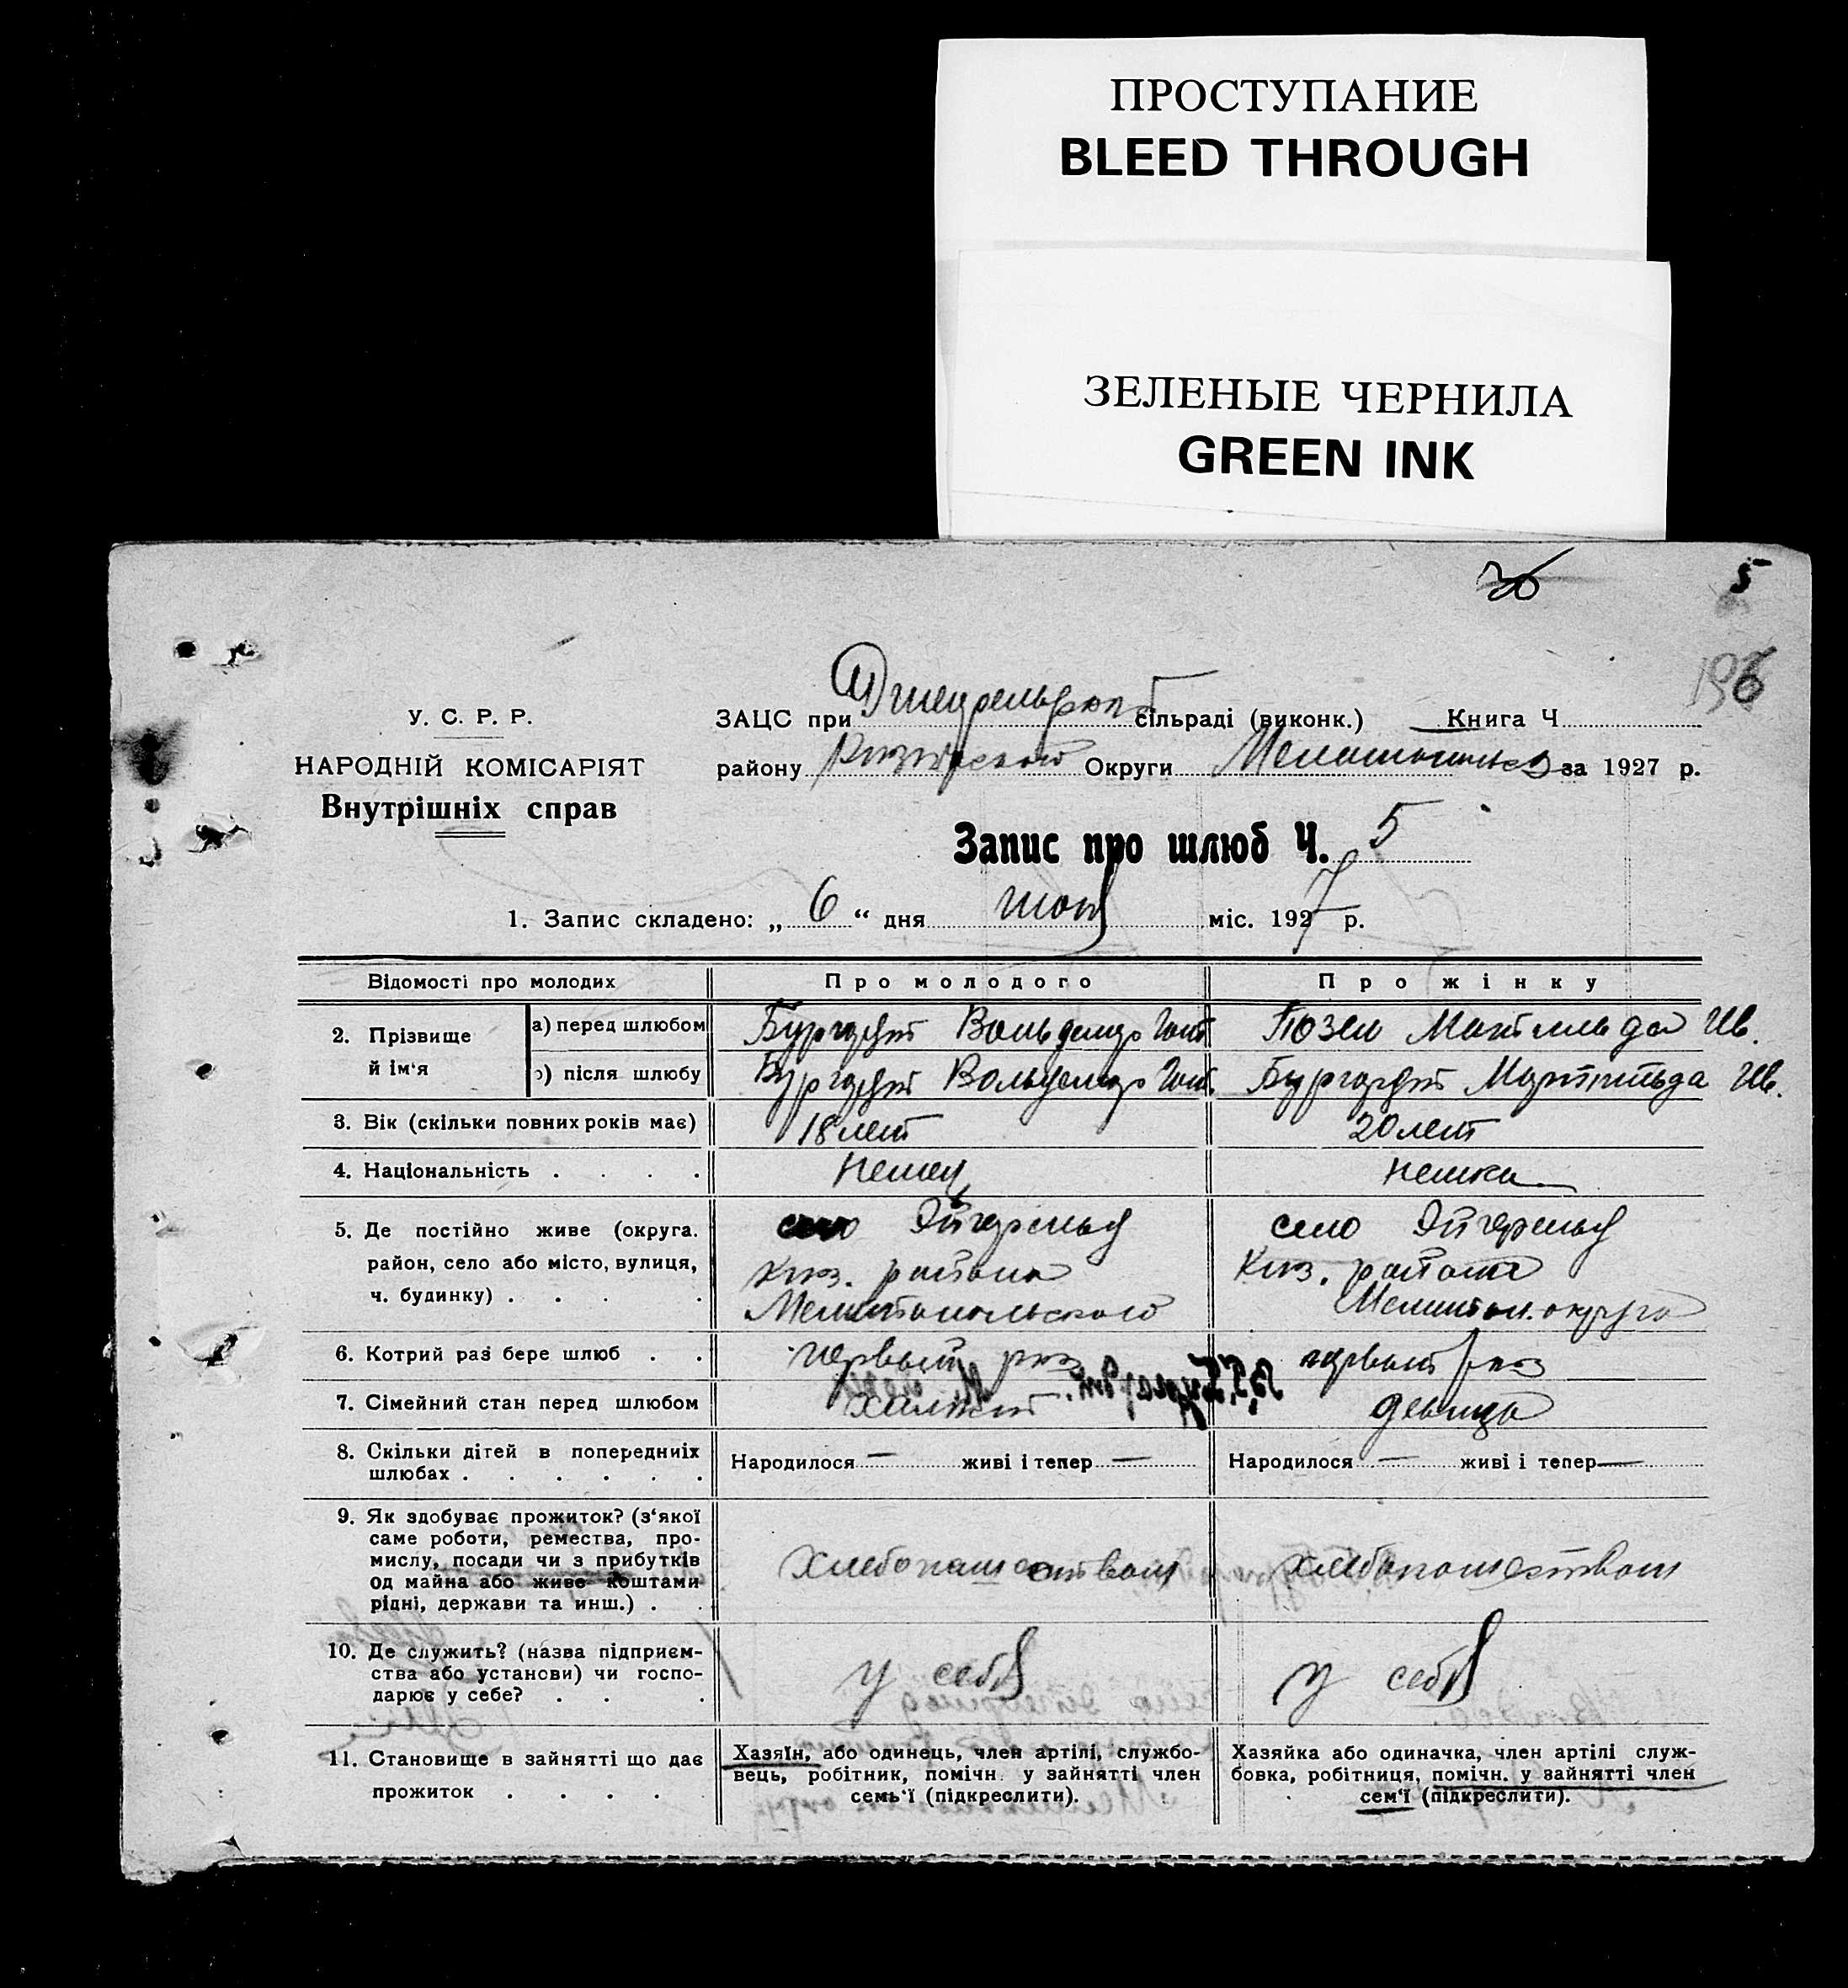 ПРОСТУПАНИЕ
BLEED THROUGH
ЗЕЛЕНЫЕ ЧЕРНИЛА
GREEN INK
5
196
У. С. Р. Р.
НАРОДНІЙ КОМІСАРІЯТ
Внутрішніх справ
ЗАЦС при сільраді (виконк.) Книга Ч
району Округи за 1927 р.
Запис про шлюб Ч. 5
1. Запис складено: „ 6 “ дня міс. 1927 р.
Відомості про молодих Про молодого Про жінку
2. Прізвище й ім‘я
а) перед шлюбом Бургардт Вольдемар Гот. Позен Матильда Ив.
б) після шлюбу Бургардт Вольдемар Гот. Бургардт Матильда Ив.
3. Вік (скільки повних років має) 18 лет 20 лет
4. Національність . . . . немец немка
5. Де постійно живе (округа. село Эйгефельд село Эйгефельд
район, село або місто, вулиця, района Киз. района
ч. будинку) . . . . Мелитопольского Мелитоп. округа
6. Котрий раз бере шлюб . . первый раз первый раз
7. Сімейний стан перед шлюбом холост девица
8. Скільки дітей в попередниіх
шлюбах . . . . . . Народилося — живі і тепер — Народилося — живі і тепер —
9. Як здобуває прожиток? (з‘якої
саме роботи, ремества, про-
мислу, посади чи з прибутків
од майна або живе коштами хлебопашеством хлебопашеством
рідні, держави та инш.) . .
10. Де служить? (назва підприєм-
ства або установи) чи госпо- у себя у себя
дарює у себе? . . .
11. Становище в зайнятті що дає
прожиток . . . . .
Хазяїн, або одинець, член артілі, службо-
вець, робітник, помічн. у зайнятті член
семь‘ї (підкреслити).
Хазяйка або одиначка, член артілі служ-
бовка, робітниця, помічн. у зайнятті член
сем‘ї (підкреслити).